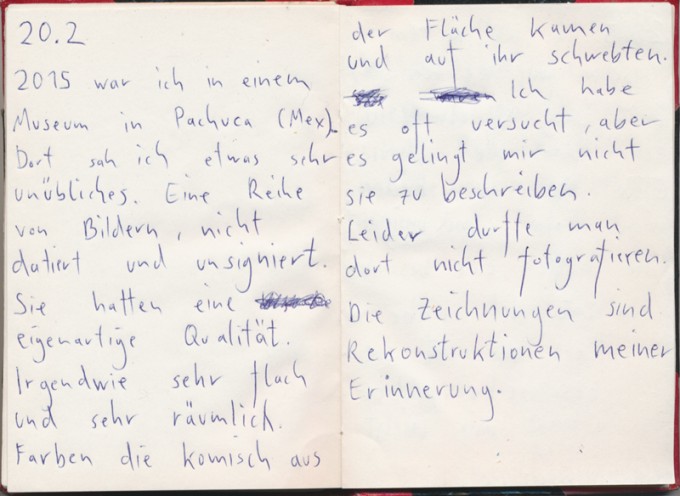 20.2
2015 war ich in einem
Museum in Pachuca (Mex).
Dort sah ich etwas sehr
unübliches. Eine Reihe
von Bildern, nicht
datiert und unsigniert.
Sie hatten eine
eigenartige Qualität.
Irgendwie sehr flach
und sehr räumlich.
Farben die komisch aus
der Fläche kamen
und auf ihr schwebten.
Ich habe
es oft versucht, aber
es gelingt mir nicht
sie zu beschreiben.
Leider durfte man
dort nicht fotografieren.
Die Zeichnungen sind
Rekonstruktionen meiner
Erinnerung.